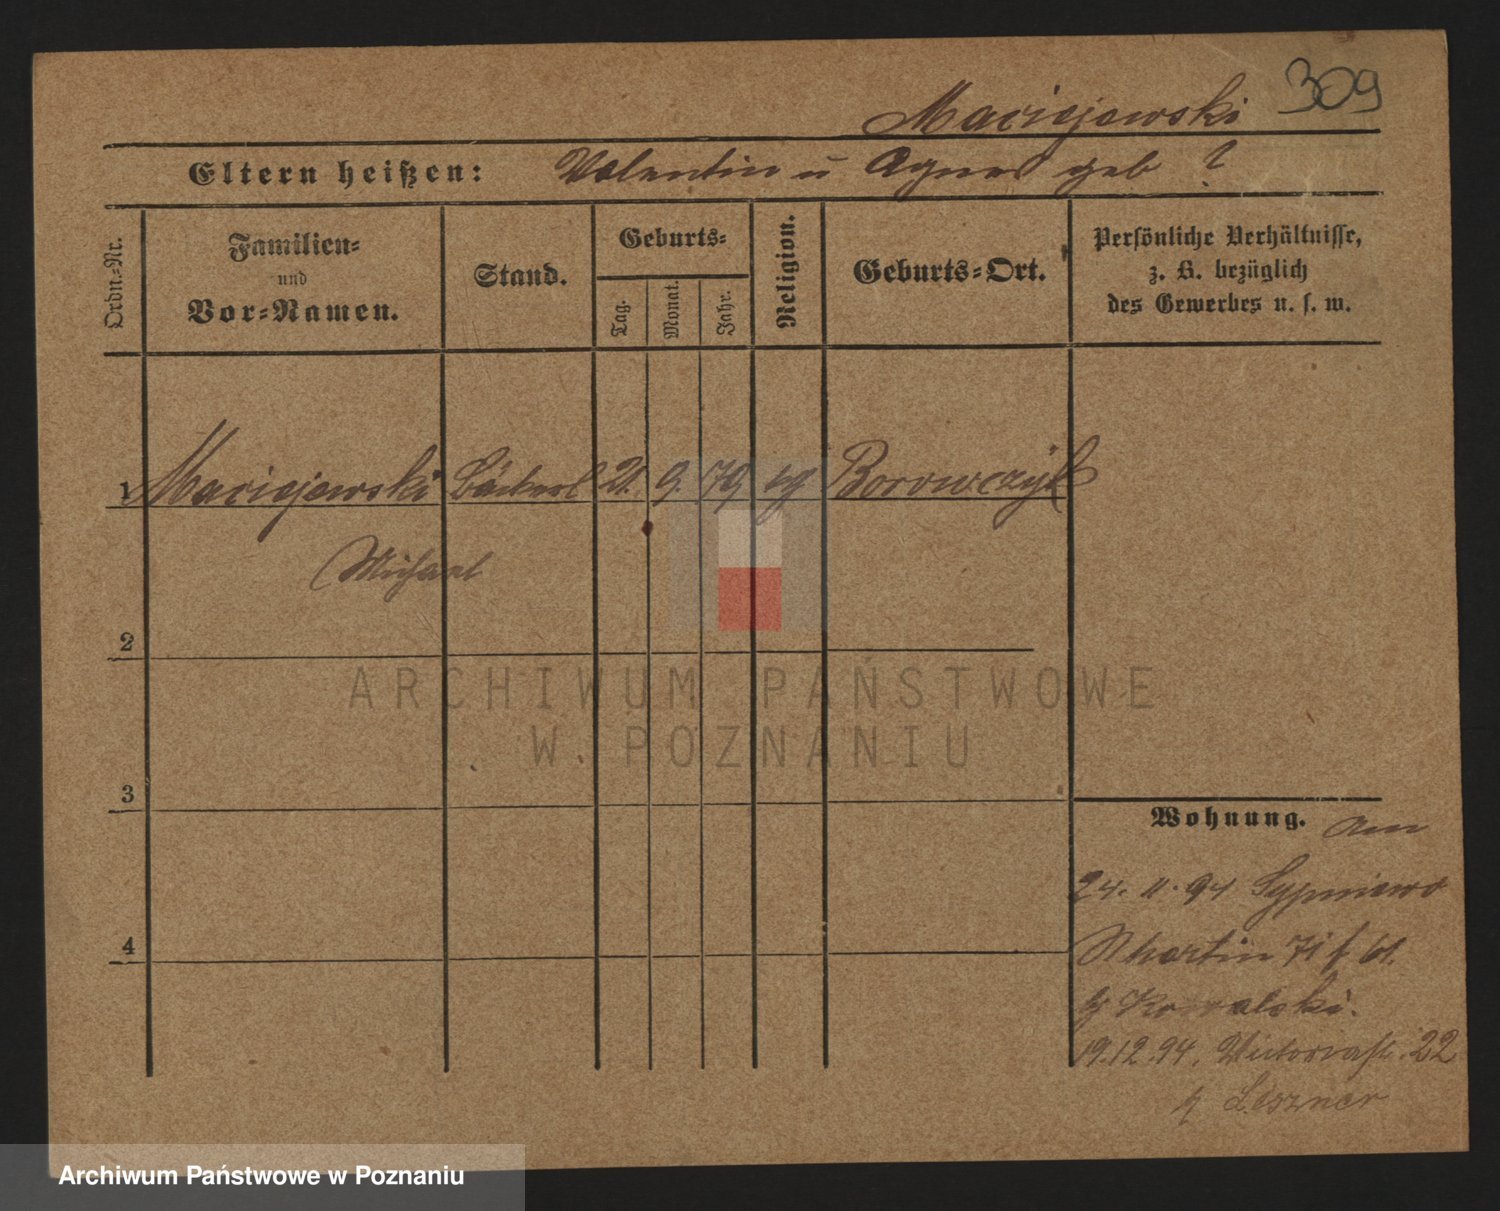 309
Maciejewski
Eltern heißen: Valentin u Agnes geb ?
Ordn.-Nr.
Familien-
und
Vor-Namen.
Stand.
Geburts-
Tag.
Monat.
Jahr.
Religion.
Geburts-Ort.
Persönliche Verhältnisse,
z. B. bezüglich
des Gewerbes u. s. w.
1 Maciejewski 21. 9. 79 Borowczyk
Michael
2
ARCHIWUM PAŃSTWOWE
W POZNANIU
3
Wohnung. am
24. 11. 94 Sypniewo
Martin 71
Kowalski.
4
19.12.94. Victoriastr. 22
Leszner
Archiwum Państwowe w Poznaniu